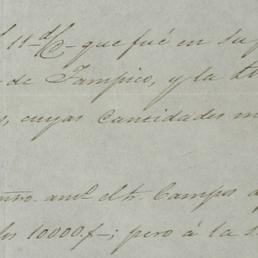 11 d/c que fué en su p
de Tampico, y la
s, cuyas Cantidades m
antr. el Sr. Campos
los 10000.f-; pero á la s